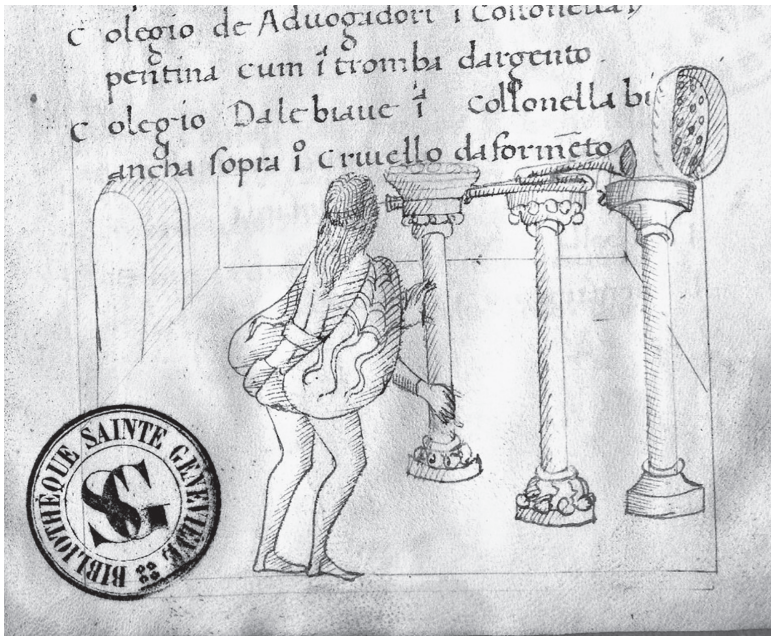 C olegio de Aduogadori ī Collonella
pentina cum ī tromba dargento
C olegio Dalebiaue ī Collonella bi
ancha sopra ī Criuello daformēto
BIBLIOTHÈQUE SAINTE GENEVIEVE
SG